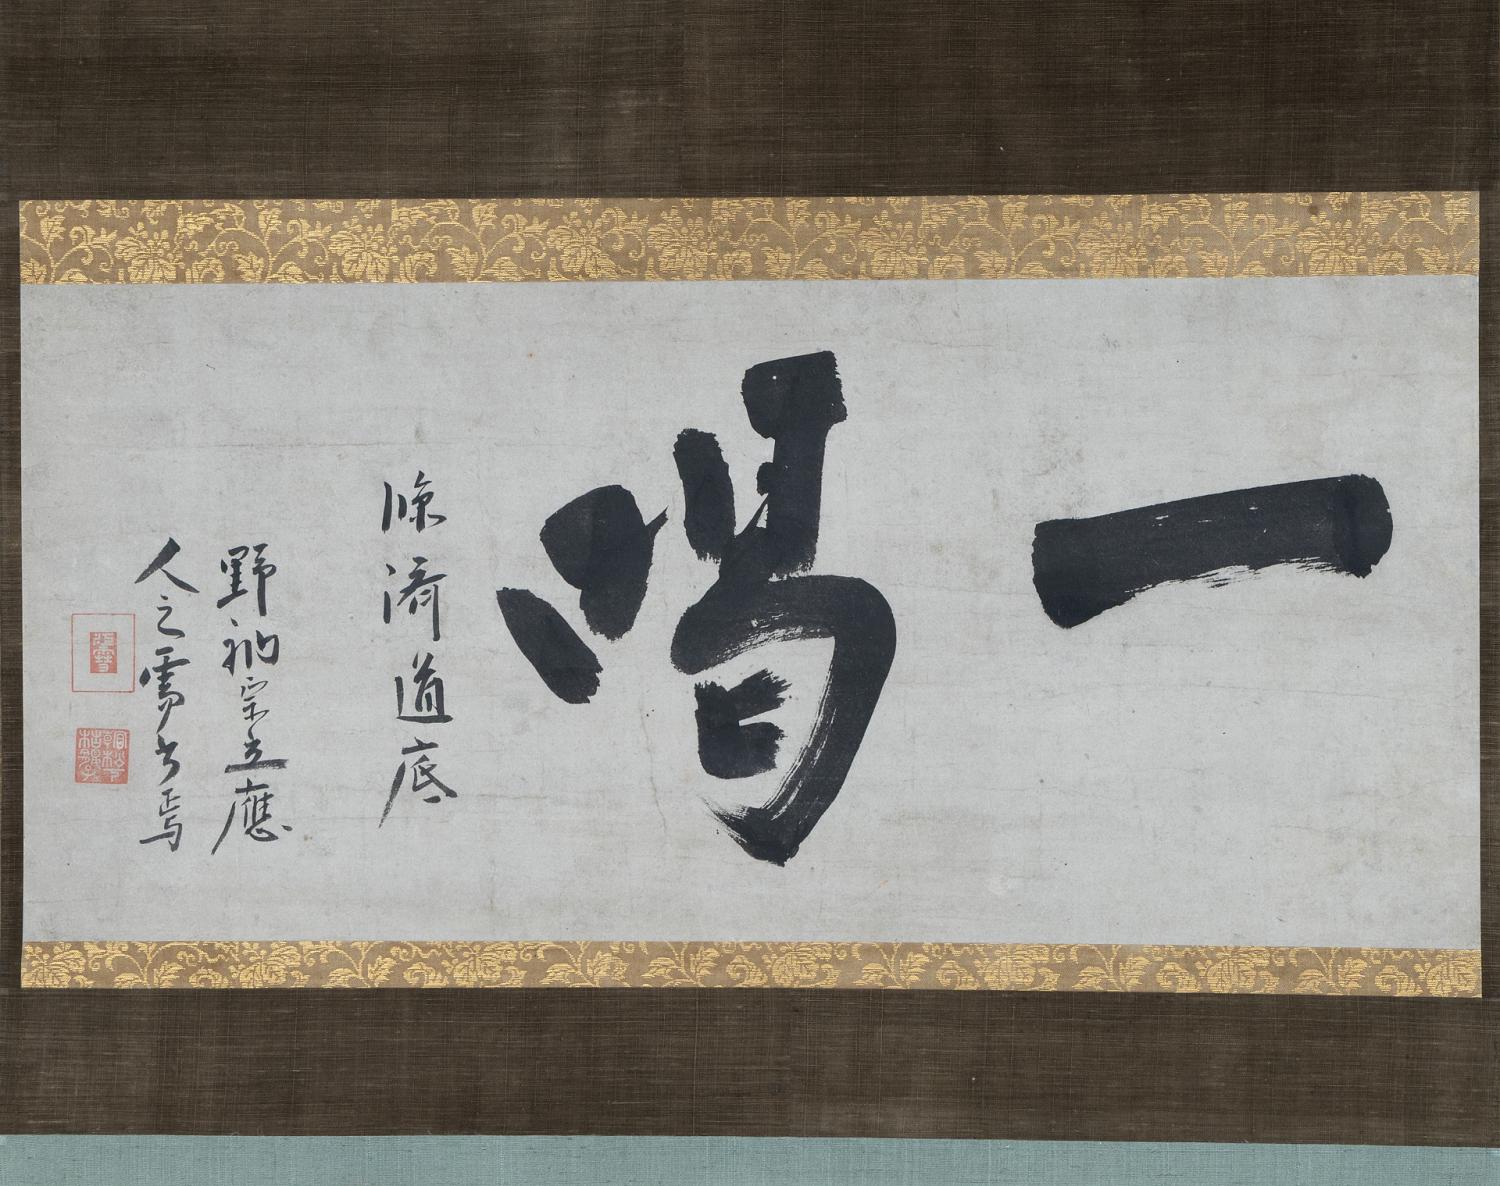 一喝
臨済道底
野衲宗立應
人之需書焉